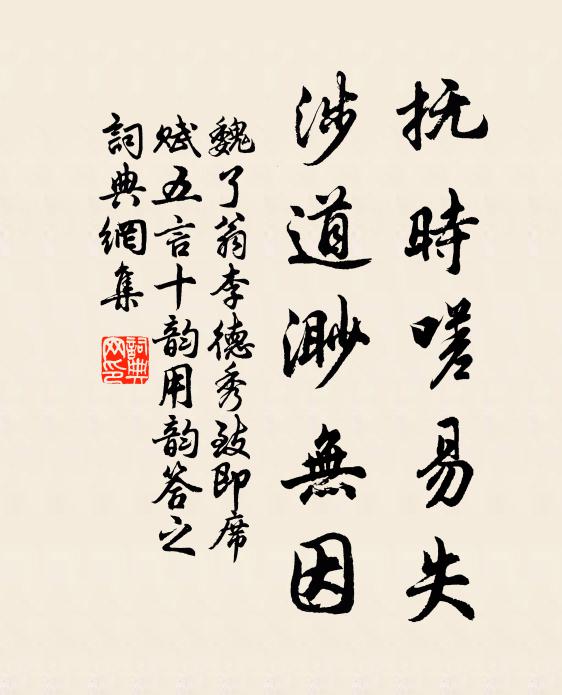 抚時嗟易失
涉道渺無因
魏了翁李德秀致即席
赋五言十韵用韵答之
詞典網集
詞典
网印